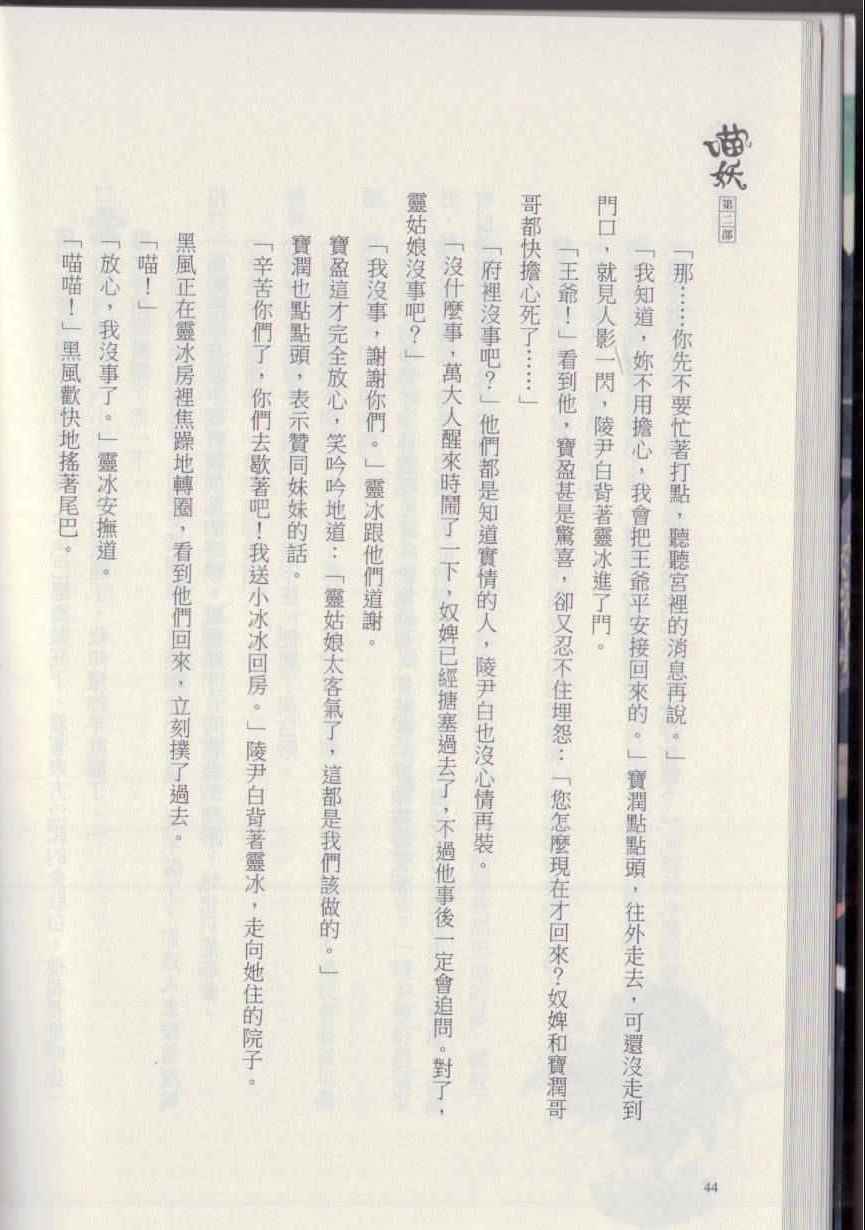 喵妖
第二部
「那……你先不要忙著打點，聽聽宮裡的消息再說。」
「我知道，妳不用擔心，我會把王爺平安接回來的。」寶潤點點頭，往外走去，可還沒走到
門口，就見人影一閃，陵尹白背著靈冰進了門。
「王爺！」看到他，寶盈甚是驚喜，卻又忍不住埋怨：「您怎麼現在才回來？奴婢和寶潤哥
哥都快擔心死了……」
「府裡沒事吧？」他們都是知道實情的人，陵尹白也沒心情再裝。
「沒什麼事，萬大人醒來時鬧了一下，奴婢已經搪塞過去了，不過他事後一定會追問。對了，
靈姑娘沒事吧？」
「我沒事，謝謝你們。」靈冰跟他們道謝。
寶盈這才完全放心，笑吟吟地道：「靈姑娘太客氣了，這都是我們該做的。」
寶潤也點點頭，表示贊同妹妹的話。
「辛苦你們了，你們去歇著吧！我送小冰冰回房。」陵尹白背著靈冰，走向她住的院子。
黑風正在靈冰房裡焦躁地轉圈，看到他們回來，立刻撲了過去。
「喵！」
「放心，我沒事了。」靈冰安撫道。
「喵喵！」黑風歡快地搖著尾巴。
44